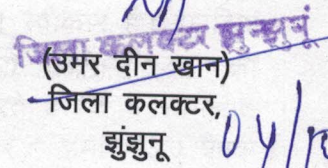 जिला कलक्टर झुन्झुनूं
(उमर दीन खान)
जिला कलक्टर,
झुंझुनू
04/